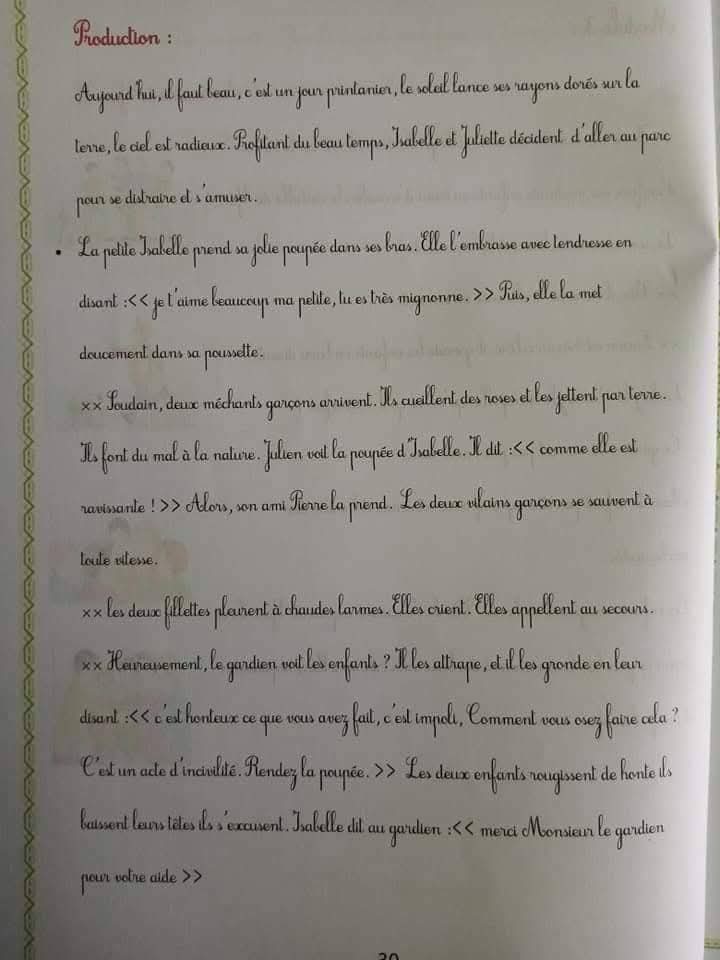 Production :
Aujourd'hui, il faut beau, c'est un jour printanier, le soleil lance ses rayons dorés sur la
terre, le ciel est radieux. Profitant du beau temps, Isabelle et Juliette décident d'aller au parc
pour se distraire et s'amuser.
• La petite Isabelle prend sa jolie poupée dans ses bras. Elle l'embrasse avec tendresse en
disant :<< je t'aime beaucoup ma petite, tu es très mignonne. >> Puis, elle la met
doucement dans sa poussette.
×× Soudain, deux méchants garçons arrivent. Ils cueillent des roses et les jettent par terre.
Ils font du mal à la nature. Julien voit la poupée d'Isabelle. Il dit :<< comme elle est
ravissante ! >> Alors, son ami Pierre la prend. Les deux vilains garçons se sauvent à
toute vitesse.
×× les deux fillettes pleurent à chaudes larmes. Elles crient. Elles appellent au secours.
×× Heureusement, le gardien voit les enfants ? Il les attrape, et il les gronde en leur
disant :<< c'est honteux ce que vous avez fait, c'est impoli, Comment vous osez faire cela ?
C'est un acte d'incivilité. Rendez la poupée. >> Les deux enfants rougissent de honte ils
baissent leurs têtes ils s'excusent. Isabelle dit au gardien :<< merci Monsieur le gardien
pour votre aide >>
30